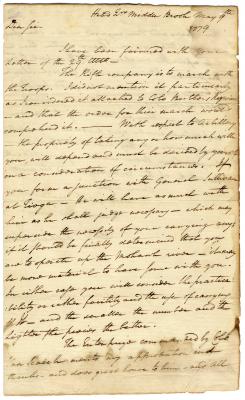 Head Qrs Middle Brook May 7th
1779
Dear Sir
I have been favoured with your
letter of the 25th Ulto
The Rifle company is to march with
the troops. I did not mention it particularly
as I considered it attached to Colo Butlers Regiment
and that the orders for their march would
comprehend it. With respect to Artillery
the propriety of taking any or how much with
you, will depend and must be decided by yourself
on a consideration of circumstances. If
you form a junction with General Sullivan
at Tioga He will have as much with
him as he shall judge necessary which may
supersede the necessity of your carrying any;
if it should be finally determined that you
are to operate up the Mohawk river it may
be more material to have some with you.
In either case you will consider the practica
bility or rather facility and the use of carrying
it and the smaller the number and the
lighter the pieces the better.
The Enterprize commanded by Colo
Van Schaick merits my approbation and
thanks and does great honor to him and all